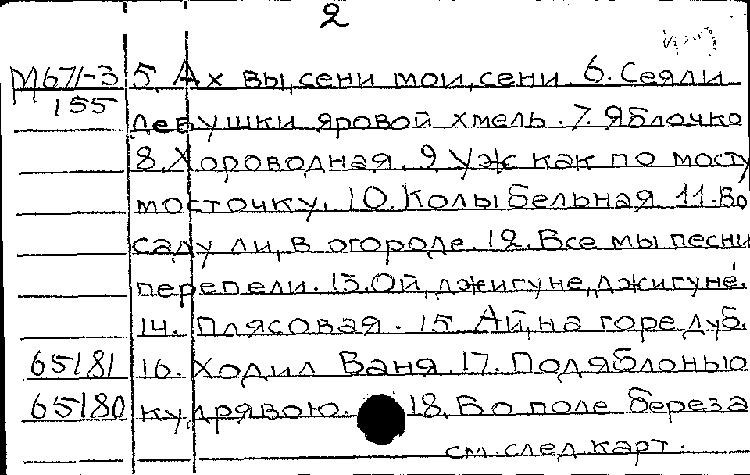 2
М671-3 5. Ах вы, сени мои, сени. 6. Сеяли
155
девушки яровой хмель. 7. Яблочко
8. Хороводная. 9. Уж как по мосту
мосточку. 10. Колыбельная 11. Во
саду ли, в огороде. 12. Все мы песни
перепели. 13. Ой, джигуне, джигуне.
14. Плясовая. 15. Ай, на горе дуб.
65181 16. Ходил Ваня. 17. Под яблонью
65180 кудрявою. 18. Во поле береза
см. след. карт.